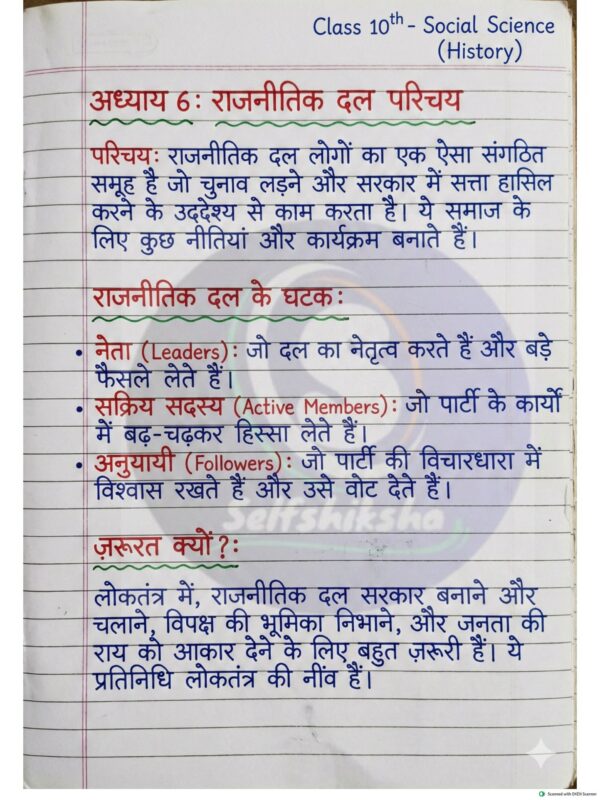 Class 10th - Social Science
(History)
अध्याय 6: राजनीतिक दल परिचय
परिचय: राजनीतिक दल लोगों का एक ऐसा संगठित
समूह है जो चुनाव लड़ने और सरकार में सत्ता हासिल
करने के उद्देश्य से काम करता है। ये समाज के
लिए कुछ नीतियां और कार्यक्रम बनाते हैं।
राजनीतिक दल के घटक:
• नेता (Leaders): जो दल का नेतृत्व करते हैं और बड़े
फैसले लेते हैं।
• सक्रिय सदस्य (Active Members): जो पार्टी के कार्यों
में बढ़-चढ़कर हिस्सा लेते हैं।
• अनुयायी (Followers): जो पार्टी की विचारधारा में
विश्वास रखते हैं और उसे वोट देते हैं।
Selfshiksha
ज़रूरत क्यों?:
लोकतंत्र में, राजनीतिक दल सरकार बनाने और
चलाने, विपक्ष की भूमिका निभाने, और जनता की
राय को आकार देने के लिए बहुत ज़रूरी हैं। ये
प्रतिनिधि लोकतंत्र की नींव हैं।
Scanned with OKEN Scanner